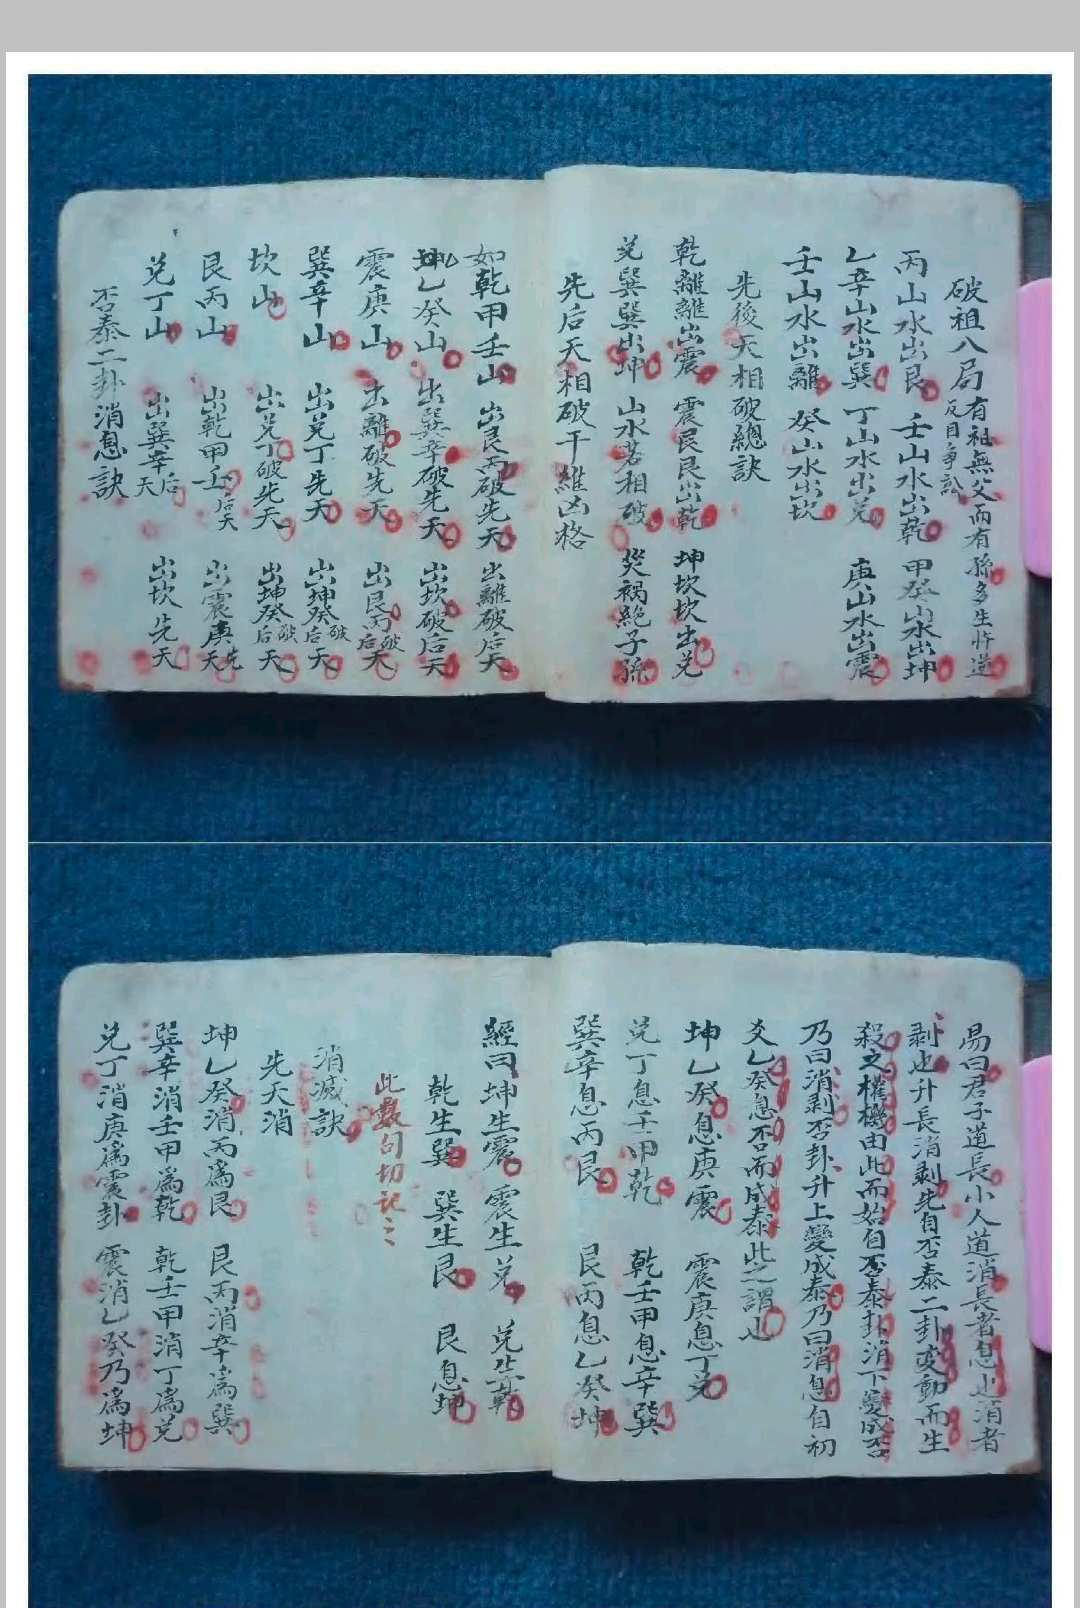 破祖八局有祖無父而有孫多生忤逆
反目爭訟
丙山水出艮 壬山水出乾 甲癸山水出坤
乙辛山水出巽 丁山水出兑 庚山水出震
壬山水出離 癸山水出坎
先後天相破總訣
乾離離出震 震艮艮出乾 坤坎坎出兑
兑巽巽出坤 山水若相破 災禍絕子孫
先后天相破干維凶格
如乾甲壬山 出艮丙破先天 出離破后天
坤乙癸山 出巽辛破先天 出坎破后天
震庚山 出離破先天 出艮丙破后天
巽辛山 出兑丁先天 出坤癸破后天
坎山 出兑丁破先天 出坤癸破后天
艮丙山 出乾甲壬后天 出震庚先天
兑丁山 出巽辛后天 出坎先天
否泰二卦消息訣
易曰君子道長小人道消長者息也消者
剥也升長消剥先自否泰二卦变動而生
殺之權機由此而始自否泰卦消下變成否
乃曰消剥否卦升上變成泰乃曰消息自初
爻乙癸息否而成泰此之謂也
坤乙癸息庚震 震庚息丁兑
兑丁息壬甲乾 乾壬甲息辛巽
巽辛息丙艮 艮丙息乙癸坤
經曰坤生震 震生兑 兑生乾
乾生巽 巽生艮 艮息坤
此數句切记之
消滅訣
先天消
坤乙癸消丙爲艮 艮丙消辛爲巽
巽辛消壬甲爲乾 乾壬甲消丁爲兑
兑丁消庚爲震卦 震消乙癸乃爲坤